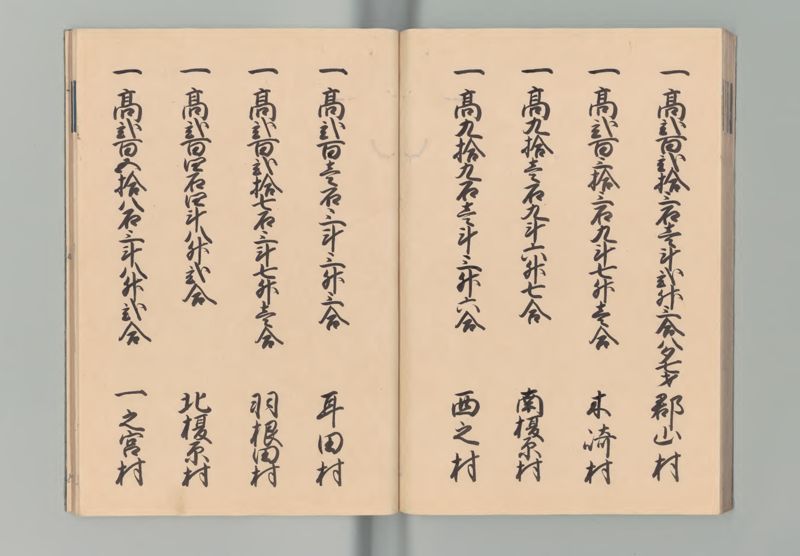 一 高弐百弐拾三石壱斗弐升三合八夕七才 郡山村
一 高弐百三拾三石九斗七升壱合 木崎村
一 高九拾壱石九斗六升七合 南榎原村
一 高九拾九石壱斗三升六合 西之村
一 高弐百壱石三斗三升三合 耳田村
一 高弐百弐拾七石三斗七升壱合 羽根田村
一 高弐百四石四斗八升弐合 北榎原村
一 高弐百五拾八石三斗八升弐合 一之宮村